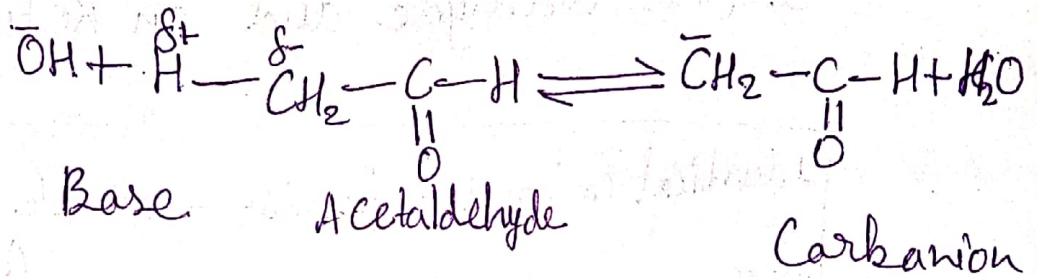 ŌH + Hδ+ — CH₂δ- — C — H ⇌ C̄H₂ — C — H + H₂O
|| ||
O O
Base Acetaldehyde
Carbanion